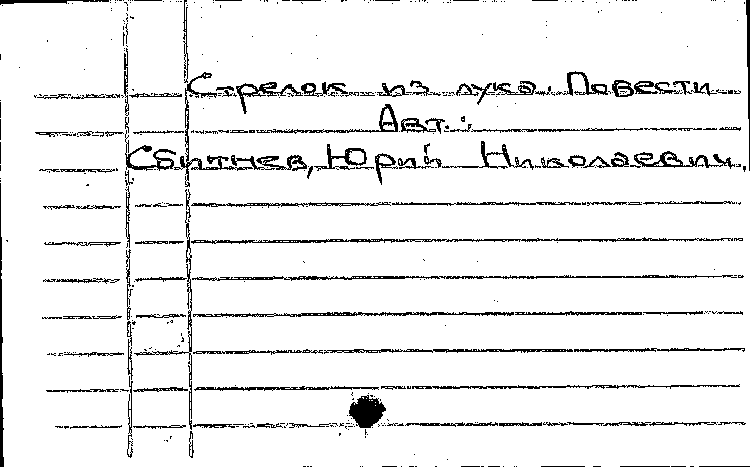 Стрелок из лука. Повести
Авт.:
Сбитнев, Юрий Николаевич.